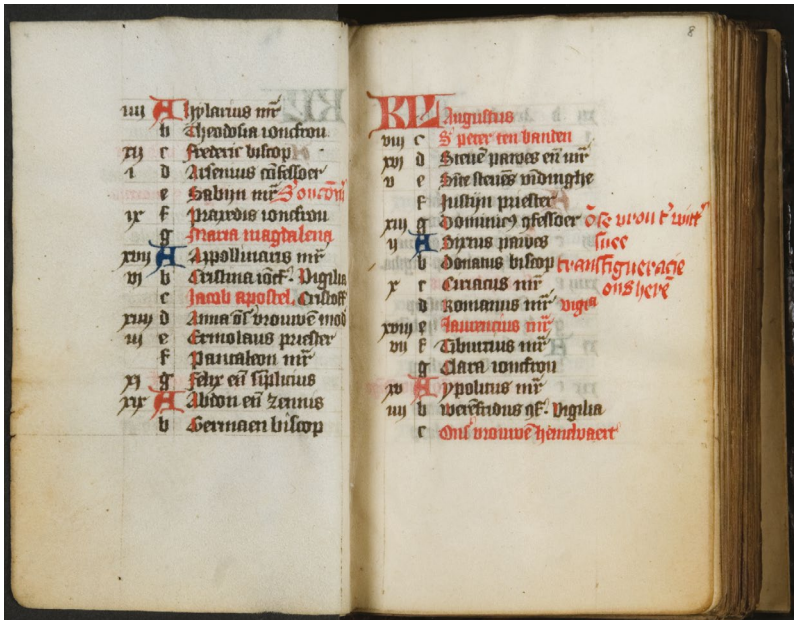 iiii A Hylarius mr̄
b Theodosia ioncfrou
xij c Frederic biscop
i d Arsenius cōfessoer
e Sabijn mr̄
ix f Praxedis ioncfrou
g Maria magdalena
xvij A Appollinaris mr̄
vj b Cristina iōcf. Vigilia
c Jacob apostel. Cristoff
xiiij d Anna ōs vrouwē mod
iij e Ermolaus priester
f Pantaleon mr̄
xj g Felix eñ simplicius
xix A Abdon eñ zennis
b Germaen biscop
8
KL Augustus
viij c S peter ten banden
xvj d Steuē pawes eñ mr̄
v e Sūte steuēs vindinghe
f Justijn priester
xiij g Dominicꝰ ꝯfessoer
ij A Sixtus pawes snee
b Donatus biscop transfigueracie
x c Ciriacus mr̄ ons herē
d Romanus mr̄ vigia
xviij e Laurencius mr̄
vij f Tiburtius mr̄
g Clara ioncfrou
xv A Ypolitus mr̄
iiij b werēfridus ꝯf. Vigilia
c Ons vrouwē hemelvaert